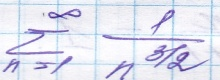 ∑_{n=1}^{∞} 1/n^{3/2}